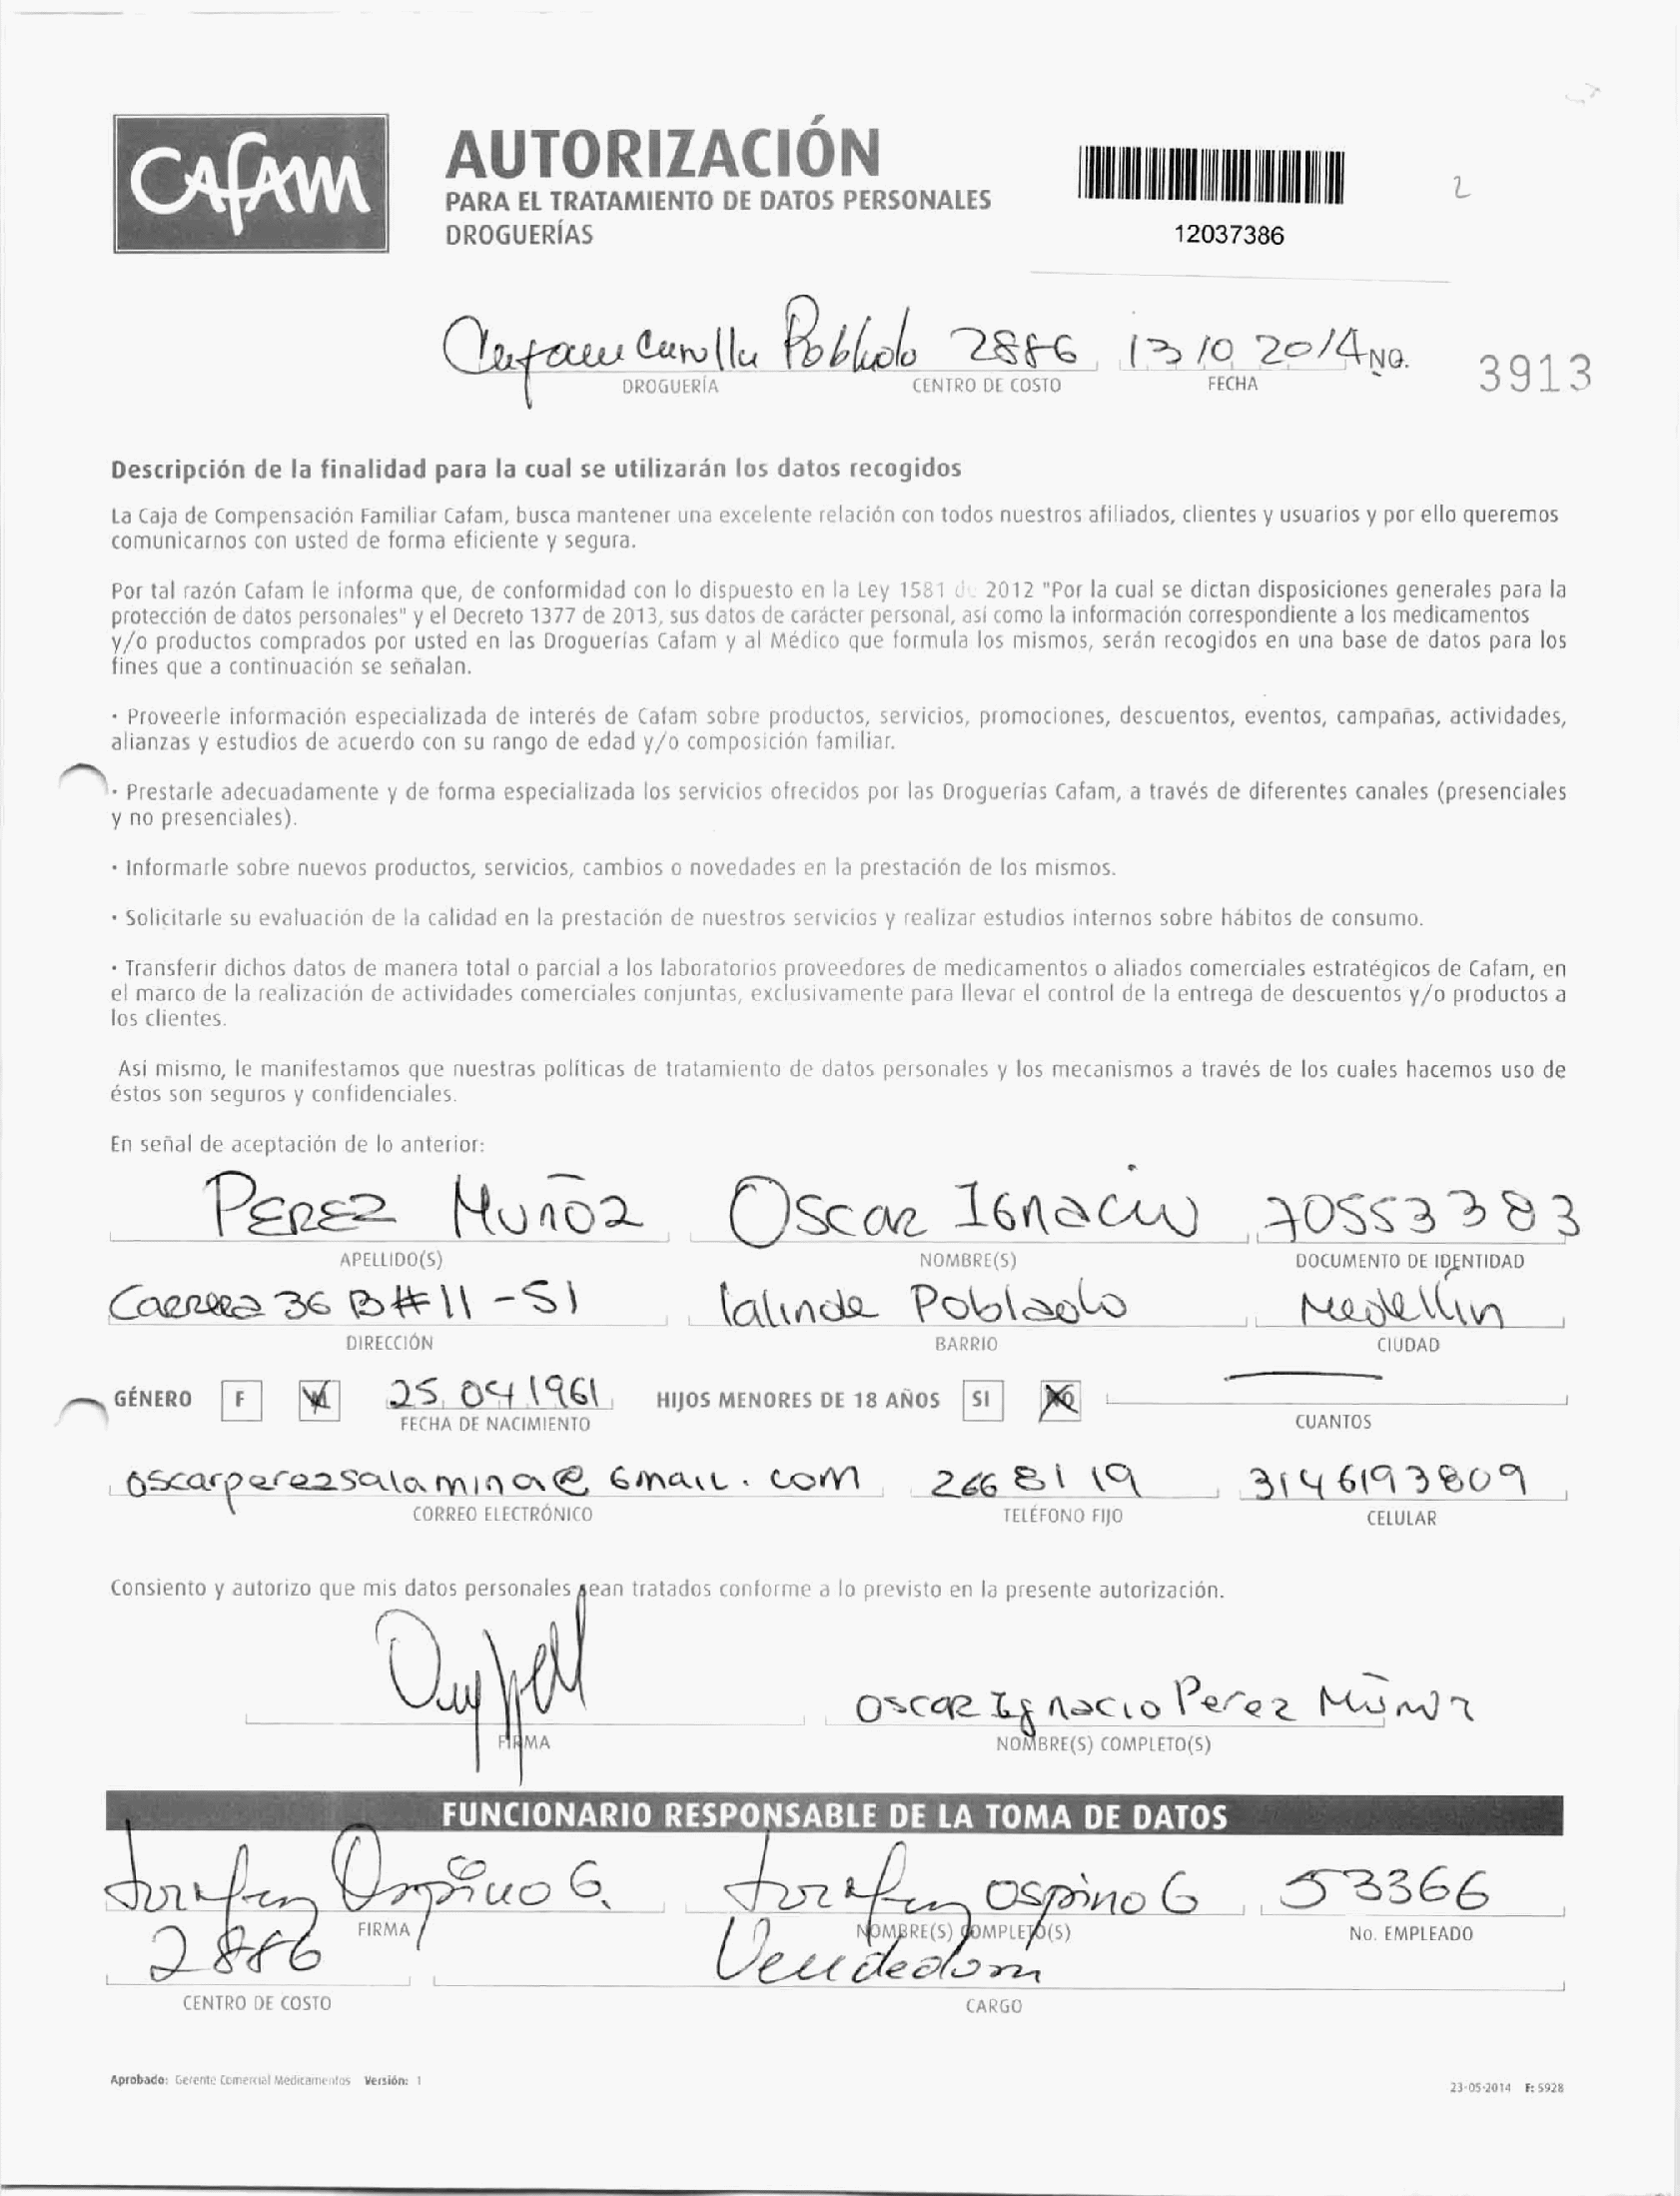 Cafam
AUTORIZACIÓN
PARA EL TRATAMIENTO DE DATOS PERSONALES
DROGUERÍAS
12037386
2
Cafam Carulla Poblado 2886 13 10 2014 No. 3913
DROGUERÍA CENTRO DE COSTO FECHA
Descripción de la finalidad para la cual se utilizarán los datos recogidos
La Caja de Compensación Familiar Cafam, busca mantener una excelente relación con todos nuestros afiliados, clientes y usuarios y por ello queremos
comunicarnos con usted de forma eficiente y segura.
Por tal razón Cafam le informa que, de conformidad con lo dispuesto en la Ley 1581 de 2012 "Por la cual se dictan disposiciones generales para la
protección de datos personales" y el Decreto 1377 de 2013, sus datos de carácter personal, así como la información correspondiente a los medicamentos
y/o productos comprados por usted en las Droguerías Cafam y al Médico que formula los mismos, serán recogidos en una base de datos para los
fines que a continuación se señalan.
· Proveerle información especializada de interés de Cafam sobre productos, servicios, promociones, descuentos, eventos, campañas, actividades,
alianzas y estudios de acuerdo con su rango de edad y/o composición familiar.
· Prestarle adecuadamente y de forma especializada los servicios ofrecidos por las Droguerías Cafam, a través de diferentes canales (presenciales
y no presenciales).
· Informarle sobre nuevos productos, servicios, cambios o novedades en la prestación de los mismos.
· Solicitarle su evaluación de la calidad en la prestación de nuestros servicios y realizar estudios internos sobre hábitos de consumo.
· Transferir dichos datos de manera total o parcial a los laboratorios proveedores de medicamentos o aliados comerciales estratégicos de Cafam, en
el marco de la realización de actividades comerciales conjuntas, exclusivamente para llevar el control de la entrega de descuentos y/o productos a
los clientes.
Así mismo, le manifestamos que nuestras políticas de tratamiento de datos personales y los mecanismos a través de los cuales hacemos uso de
éstos son seguros y confidenciales.
En señal de aceptación de lo anterior:
PEREZ MUÑOZ OSCAR IGNACIO 70553383
APELLIDO(S) NOMBRE(S) DOCUMENTO DE IDENTIDAD
Carrera 36 B # 11 - 51 lalinde Poblado Medellin
DIRECCIÓN BARRIO CIUDAD
GÉNERO F M 25 04 1961 HIJOS MENORES DE 18 AÑOS SI NO —
FECHA DE NACIMIENTO CUANTOS
oscarperezsalamina@Gmail.com 2668119 3146193809
CORREO ELECTRÓNICO TELÉFONO FIJO CELULAR
Consiento y autorizo que mis datos personales sean tratados conforme a lo previsto en la presente autorización.
Oscar Ignacio Perez Muñoz
FIRMA NOMBRE(S) COMPLETO(S)
FUNCIONARIO RESPONSABLE DE LA TOMA DE DATOS
Ospino G. Ospino G 53366
FIRMA NOMBRE(S) COMPLETO(S) No. EMPLEADO
2886 Vendedora
CENTRO DE COSTO CARGO
Aprobado: Gerente Comercial Medicamentos Versión: 1
23-05-2014 F: 5928